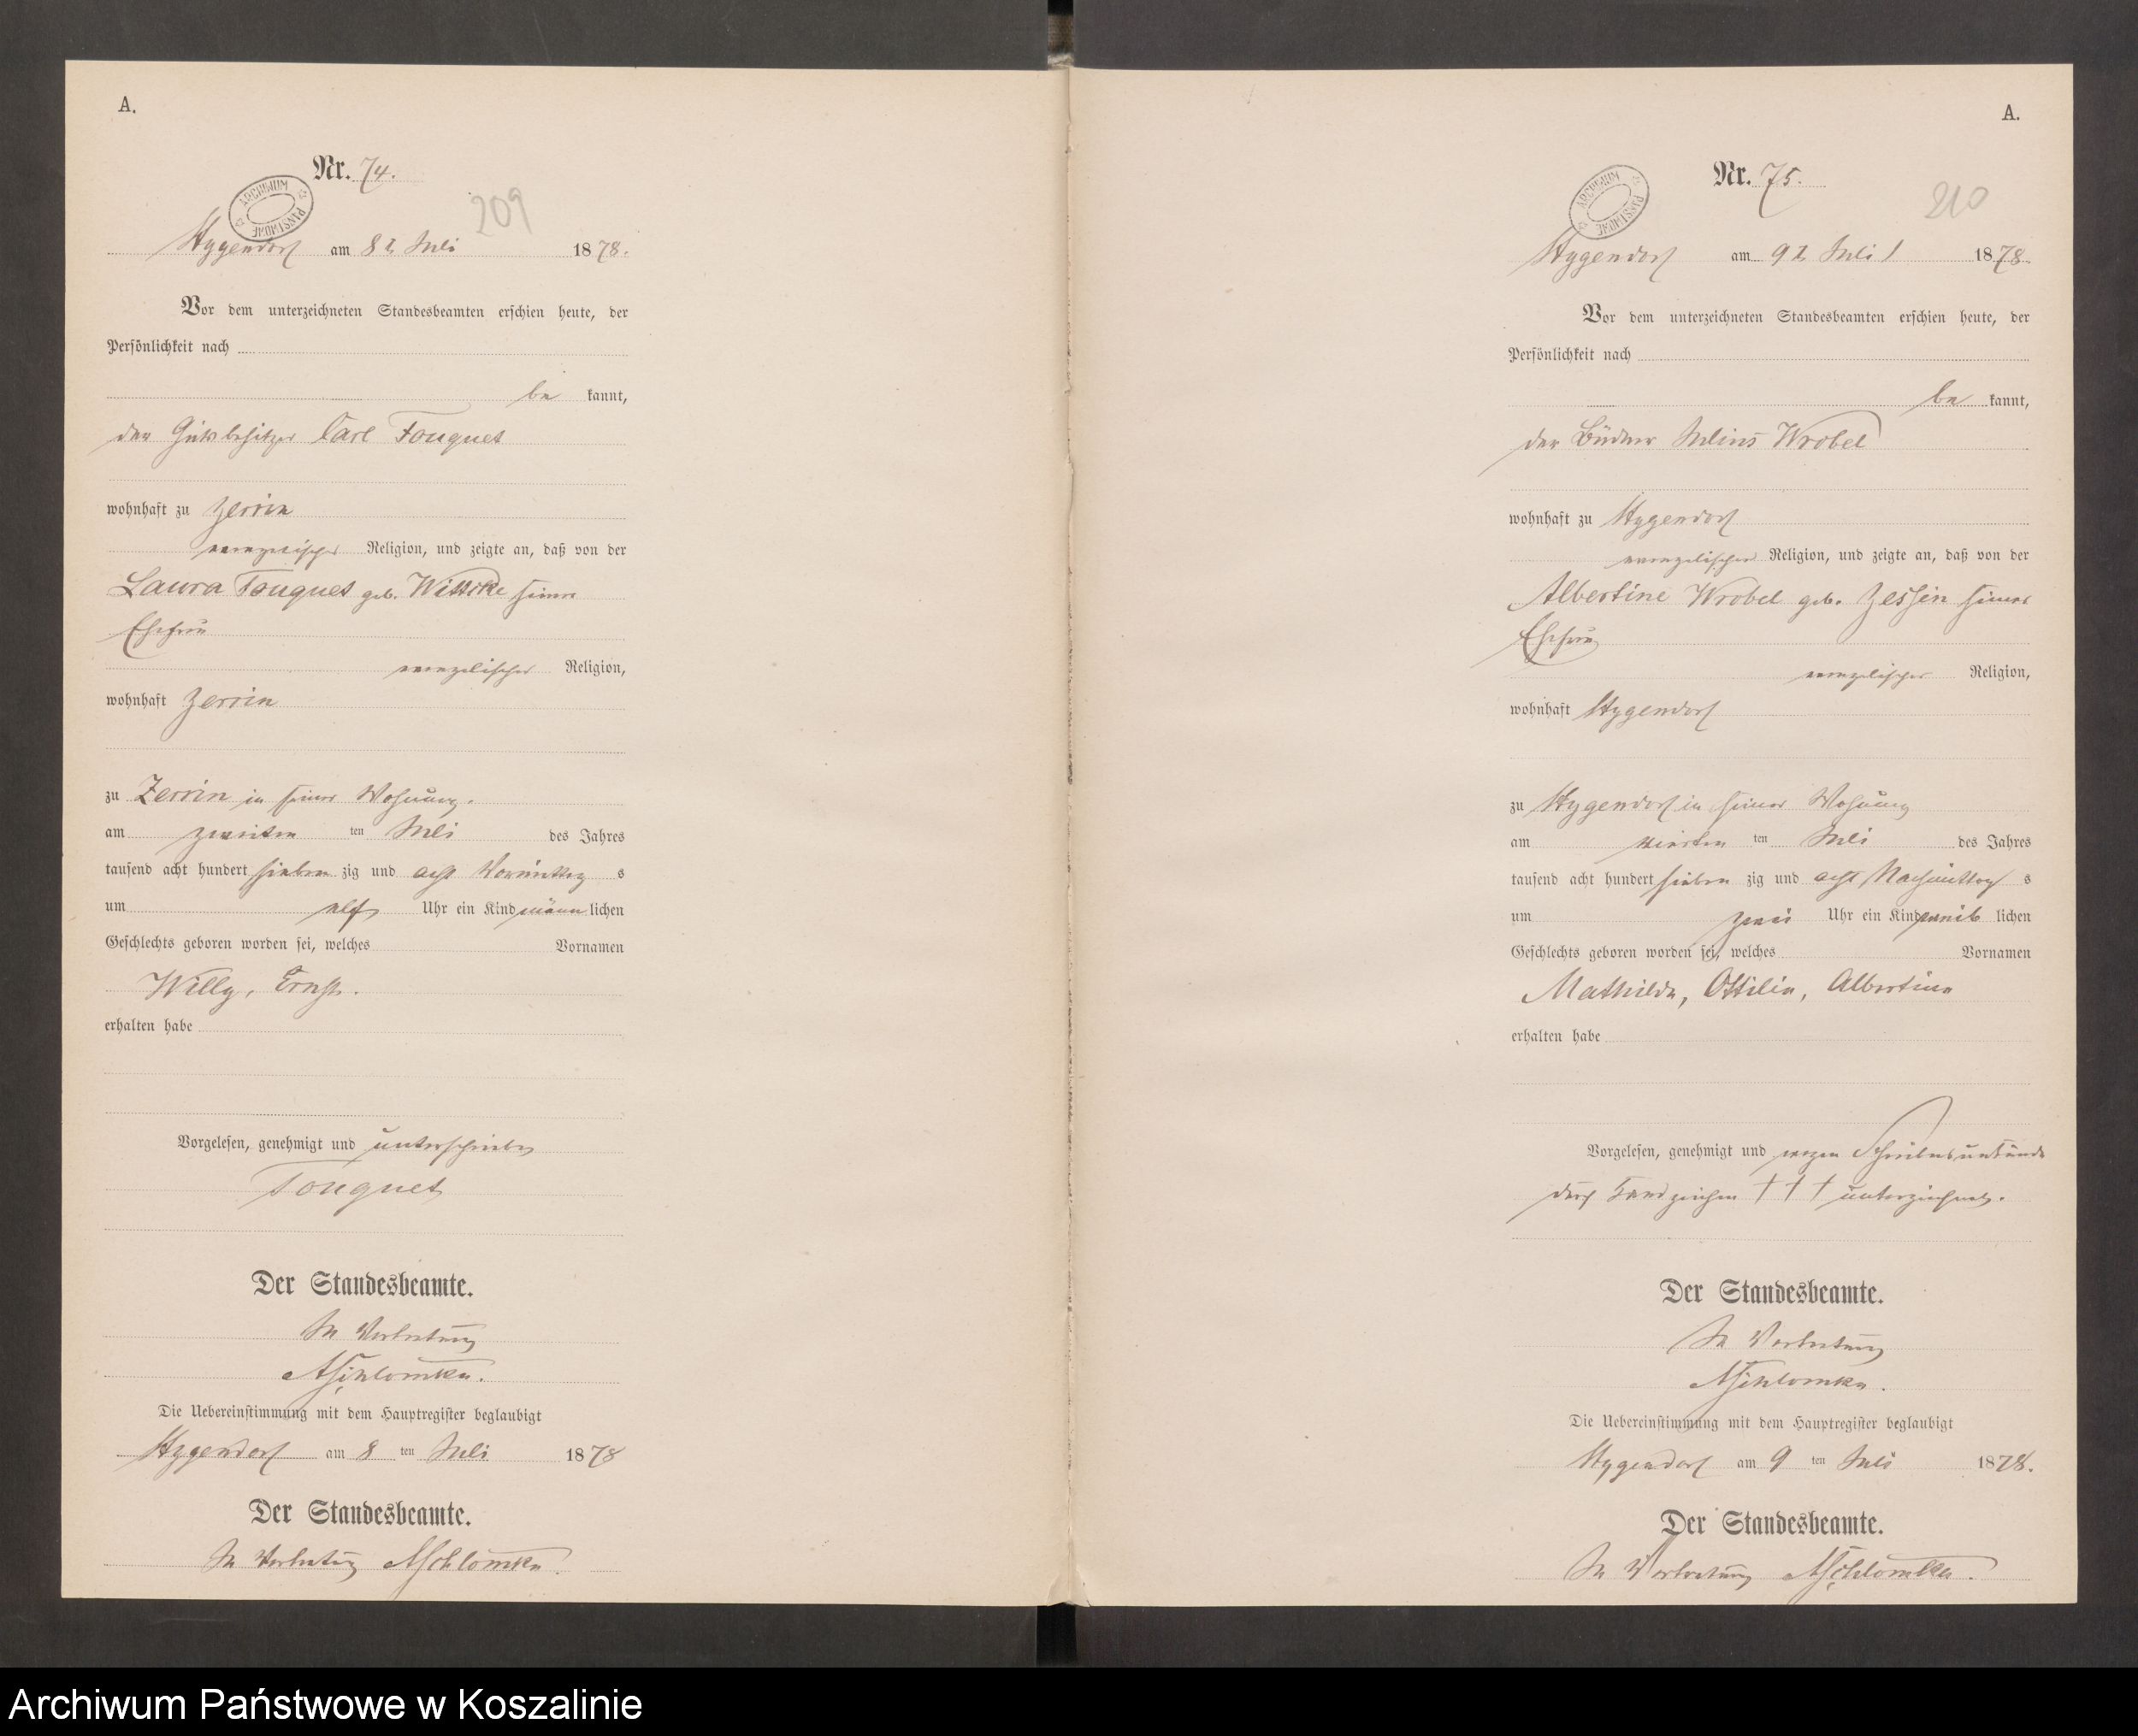 A.
Nr. 74.
ARCHIWUM PAŃSTWOWE
209
Hygendorf am 8t Juli 1878.
Vor dem unterzeichneten Standesbeamten erschien heute, der
Persönlichkeit nach
be kannt,
der Gutsbesitzer Carl Fouquet
wohnhaft zu Zerrin
evangelischer Religion, und zeigte an, daß von der
Laura Fouquet geb. Wittcke seiner
Ehefrau
evangelischer Religion,
wohnhaft Zerrin
zu Zerrin in seiner Wohnung.
am zweiten ten Juli des Jahres
tausend acht hundert sieben zig und acht Vormittag s
um elf Uhr ein Kind männ lichen
Geschlechts geboren worden sei, welches Vornamen
Willy, Ernst.
erhalten habe
Vorgelesen, genehmigt und unterschrieben
Fouquet
Der Standesbeamte.
In Vertretung
Die Uebereinstimmung mit dem Hauptregister beglaubigt
Hygendorf am 8 ten Juli 1878
Der Standesbeamte.
In Vertretung
A.
Nr. 75.
ARCHIWUM PAŃSTWOWE
210
Hygendorf am 9t Juli 1878
Vor dem unterzeichneten Standesbeamten erschien heute, der
Persönlichkeit nach
be kannt,
der Büdner Julius Wrobel
wohnhaft zu Hygendorf
evangelischer Religion, und zeigte an, daß von der
Albertine Wrobel geb. Zessin seiner
Ehefrau
evangelischer Religion,
wohnhaft Hygendorf
zu Hygendorf in seiner Wohnung
am vierten ten Juli des Jahres
tausend acht hundert sieben zig und acht Nachmittag s
um zwei Uhr ein Kind weib lichen
Geschlechts geboren worden sei, welches Vornamen
Mathilde, Ottilie, Albertine
erhalten habe
Vorgelesen, genehmigt und wegen Schreibensunkunde
durch Handzeichen † † † unterzeichnet.
Der Standesbeamte.
In Vertretung
Die Uebereinstimmung mit dem Hauptregister beglaubigt
Hygendorf am 9 ten Juli 1878.
Der Standesbeamte.
In Vertretung
Archiwum Państwowe w Koszalinie